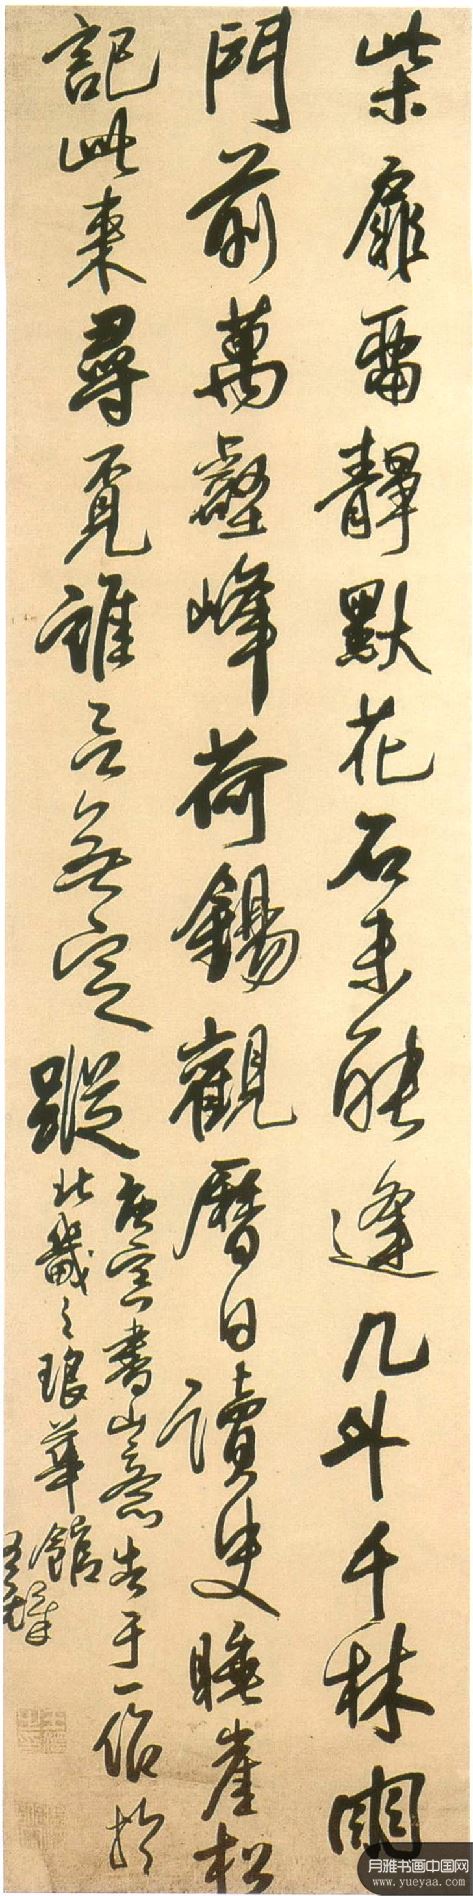 柴扉爾靜默花石未能逢几外千林
門前萬壑峰荷錫觀曆日讀史睡崖松
記此來尋覓誰言無定蹤
庚寅書山意于一侶於
北畿之琅華館
王鐸
月雅书画中国网
www.yueyaa.com